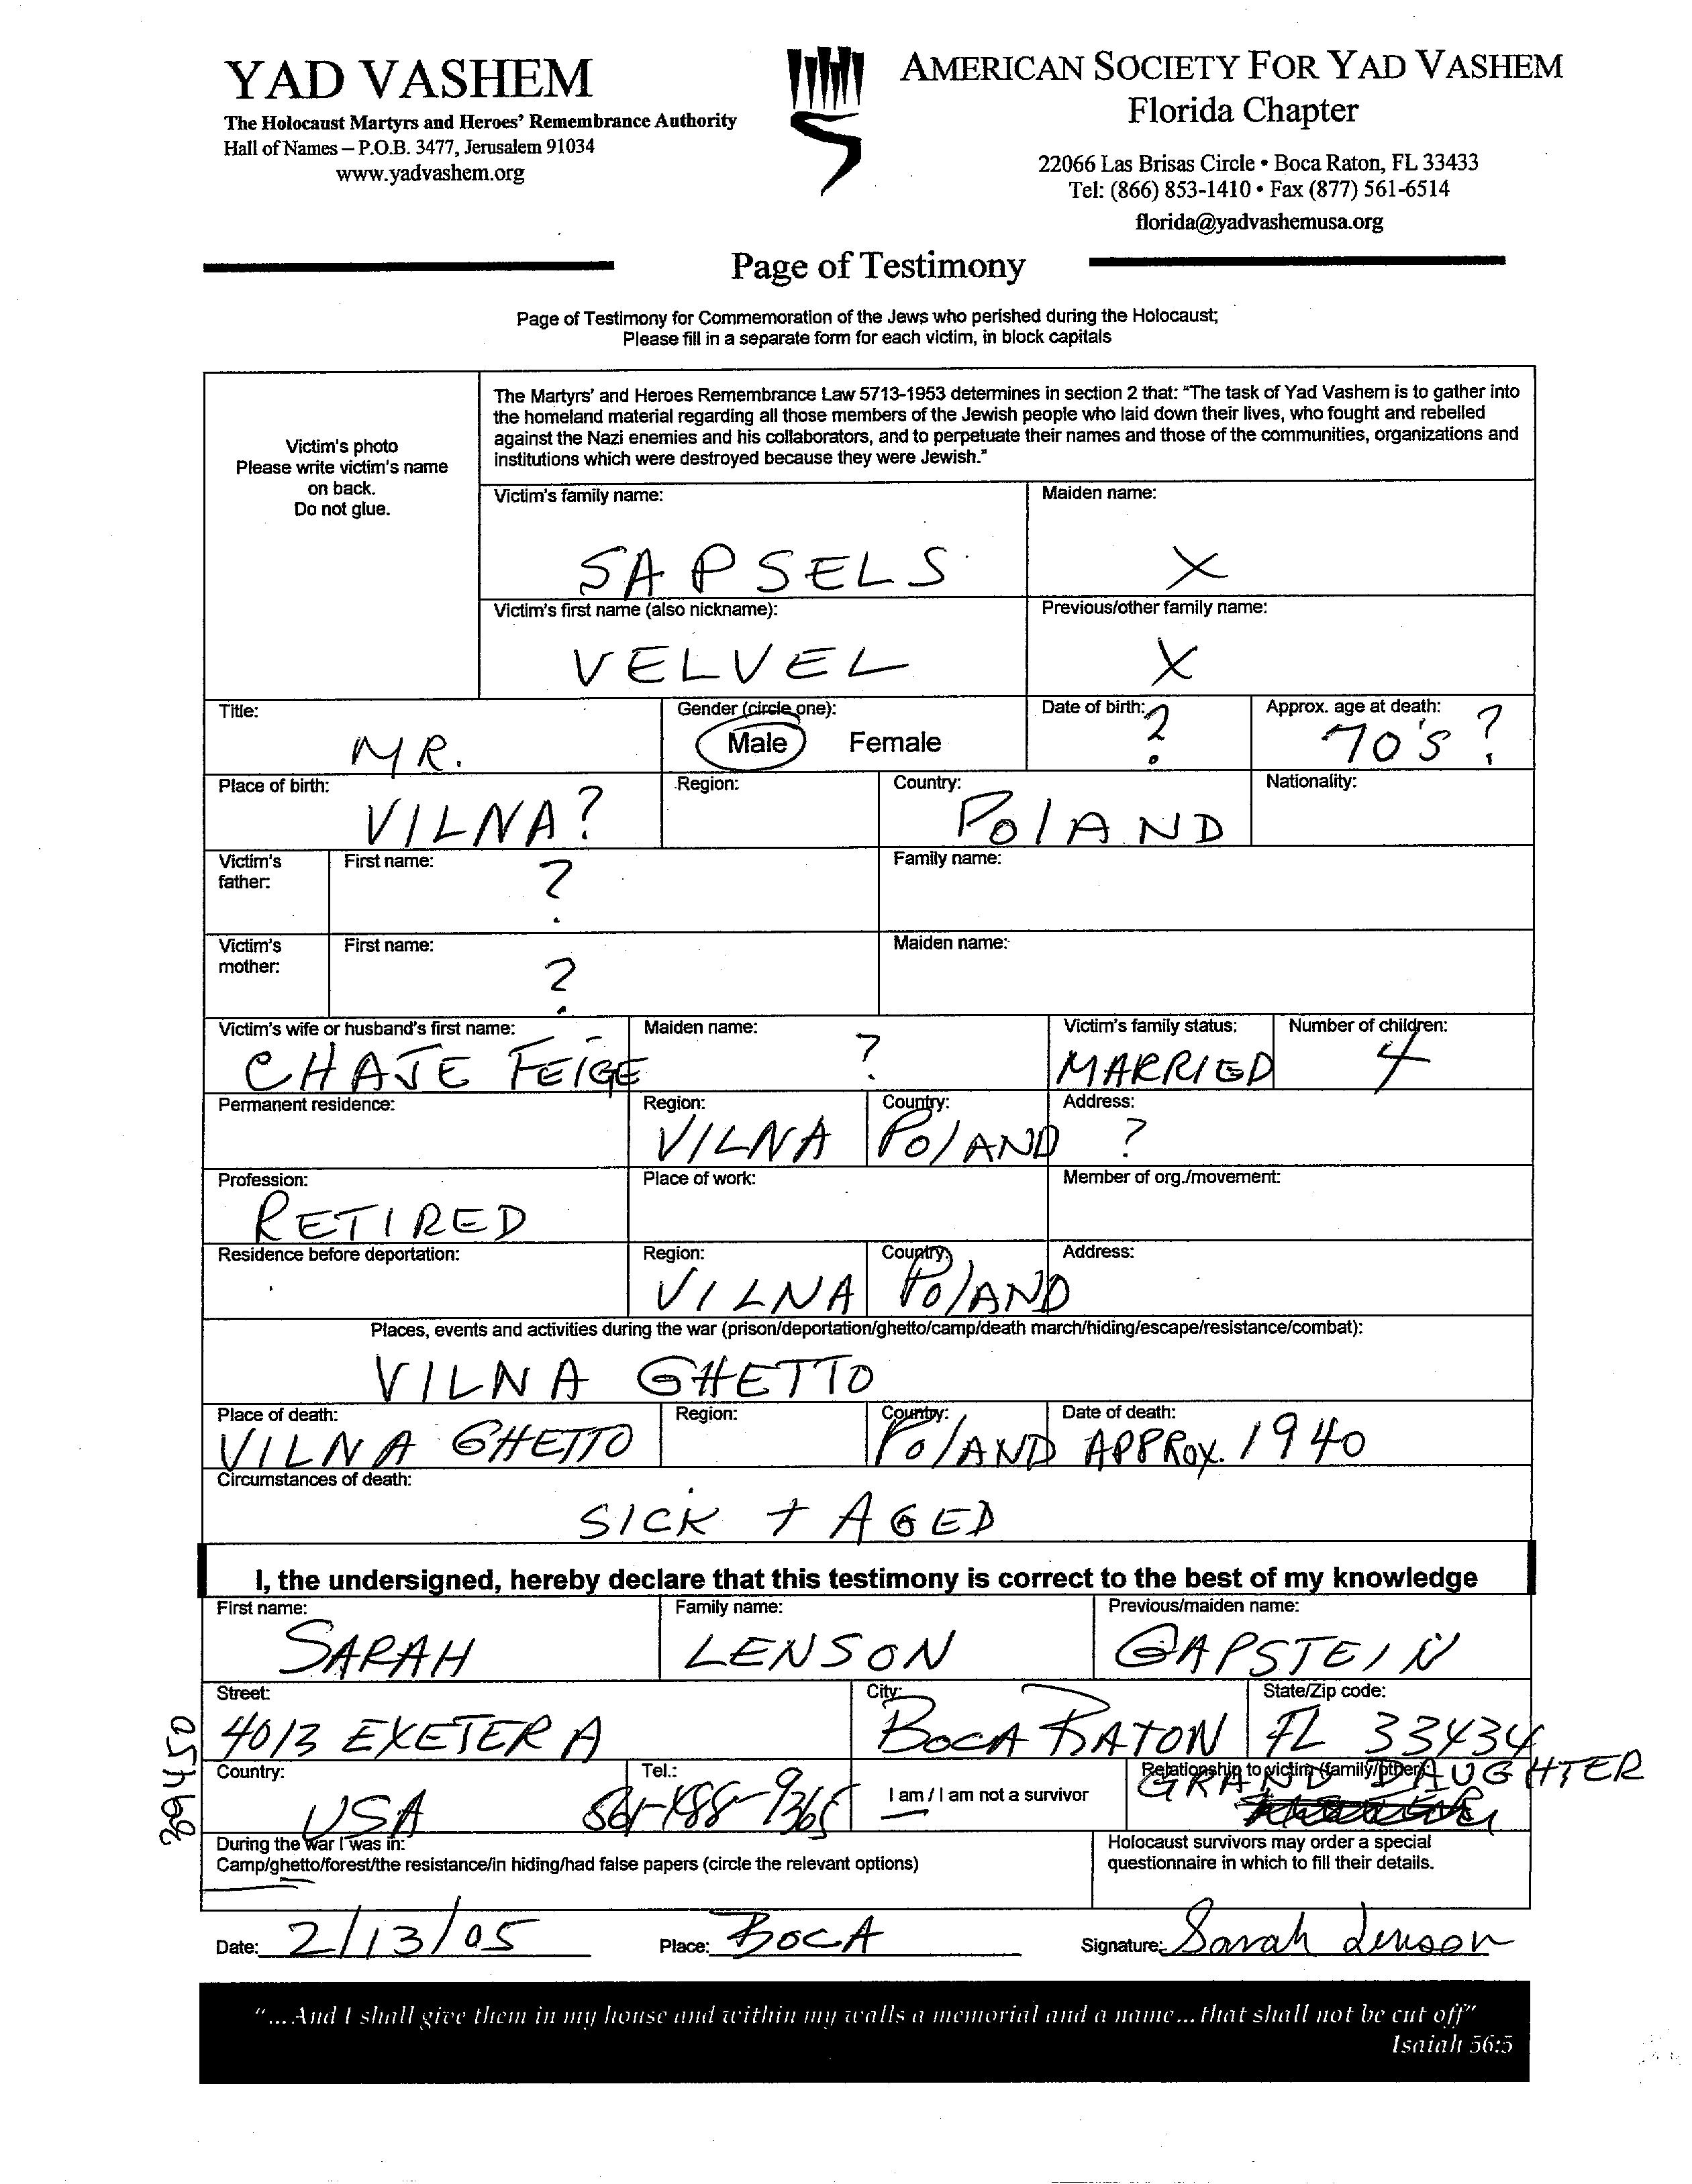 YAD VASHEM
The Holocaust Martyrs and Heroes' Remembrance Authority
Hall of Names – P.O.B. 3477, Jerusalem 91034
www.yadvashem.org
AMERICAN SOCIETY FOR YAD VASHEM
Florida Chapter
22066 Las Brisas Circle • Boca Raton, FL 33433
Tel: (866) 853-1410 • Fax (877) 561-6514
florida@yadvashemusa.org
Page of Testimony
Page of Testimony for Commemoration of the Jews who perished during the Holocaust;
Please fill in a separate form for each victim, in block capitals
Victim's photo
Please write victim's name
on back.
Do not glue.
The Martyrs' and Heroes Remembrance Law 5713-1953 determines in section 2 that: "The task of Yad Vashem is to gather into
the homeland material regarding all those members of the Jewish people who laid down their lives, who fought and rebelled
against the Nazi enemies and his collaborators, and to perpetuate their names and those of the communities, organizations and
institutions which were destroyed because they were Jewish."
Victim's family name: Maiden name:
SAPSELS X
Victim's first name (also nickname): Previous/other family name:
VELVEL X
Title: Gender (circle one): Date of birth: Approx. age at death:
MR. Male Female ? 70'S ?
Place of birth: Region: Country: Nationality:
VILNA? POLAND
Victim's father: First name: Family name:
?
Victim's mother: First name: Maiden name:
?
Victim's wife or husband's first name: Maiden name: Victim's family status: Number of children:
CHAJE FEIGE ? MARRIED 4
Permanent residence: Region: Country: Address:
VILNA POLAND ?
Profession: Place of work: Member of org./movement:
RETIRED
Residence before deportation: Region: Country: Address:
VILNA POLAND
Places, events and activities during the war (prison/deportation/ghetto/camp/death march/hiding/escape/resistance/combat):
VILNA GHETTO
Place of death: Region: Country: Date of death:
VILNA GHETTO POLAND APPROX. 1940
Circumstances of death:
SICK + AGED
I, the undersigned, hereby declare that this testimony is correct to the best of my knowledge
First name: Family name: Previous/maiden name:
SARAH LENSON GAPSTEIN
Street: City: State/Zip code:
4013 EXETER A BOCA RATON FL 33434
Country: Tel.: I am / I am not a survivor Relationship to victim (family/other):
USA GRAND DAUGHTER
During the war I was in:
Camp/ghetto/forest/the resistance/in hiding/had false papers (circle the relevant options)
Holocaust survivors may order a special
questionnaire in which to fill their details.
Date: 2/13/05 Place: BOCA Signature: Sarah Lenson
"...And I shall give them in my house and within my walls a memorial and a name... that shall not be cut off"
Isaiah 56:5